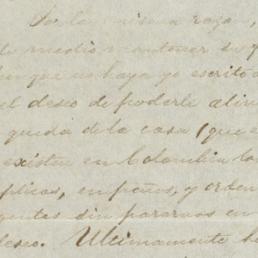 Por la misma razon,
de medio mantener su
que no haya yo escrito
el deseo de poderle
queda de la casa (que
existen en Colombia
plicas, empeños, y orden
gentes sin pararnos en
deseo. Ultimamente